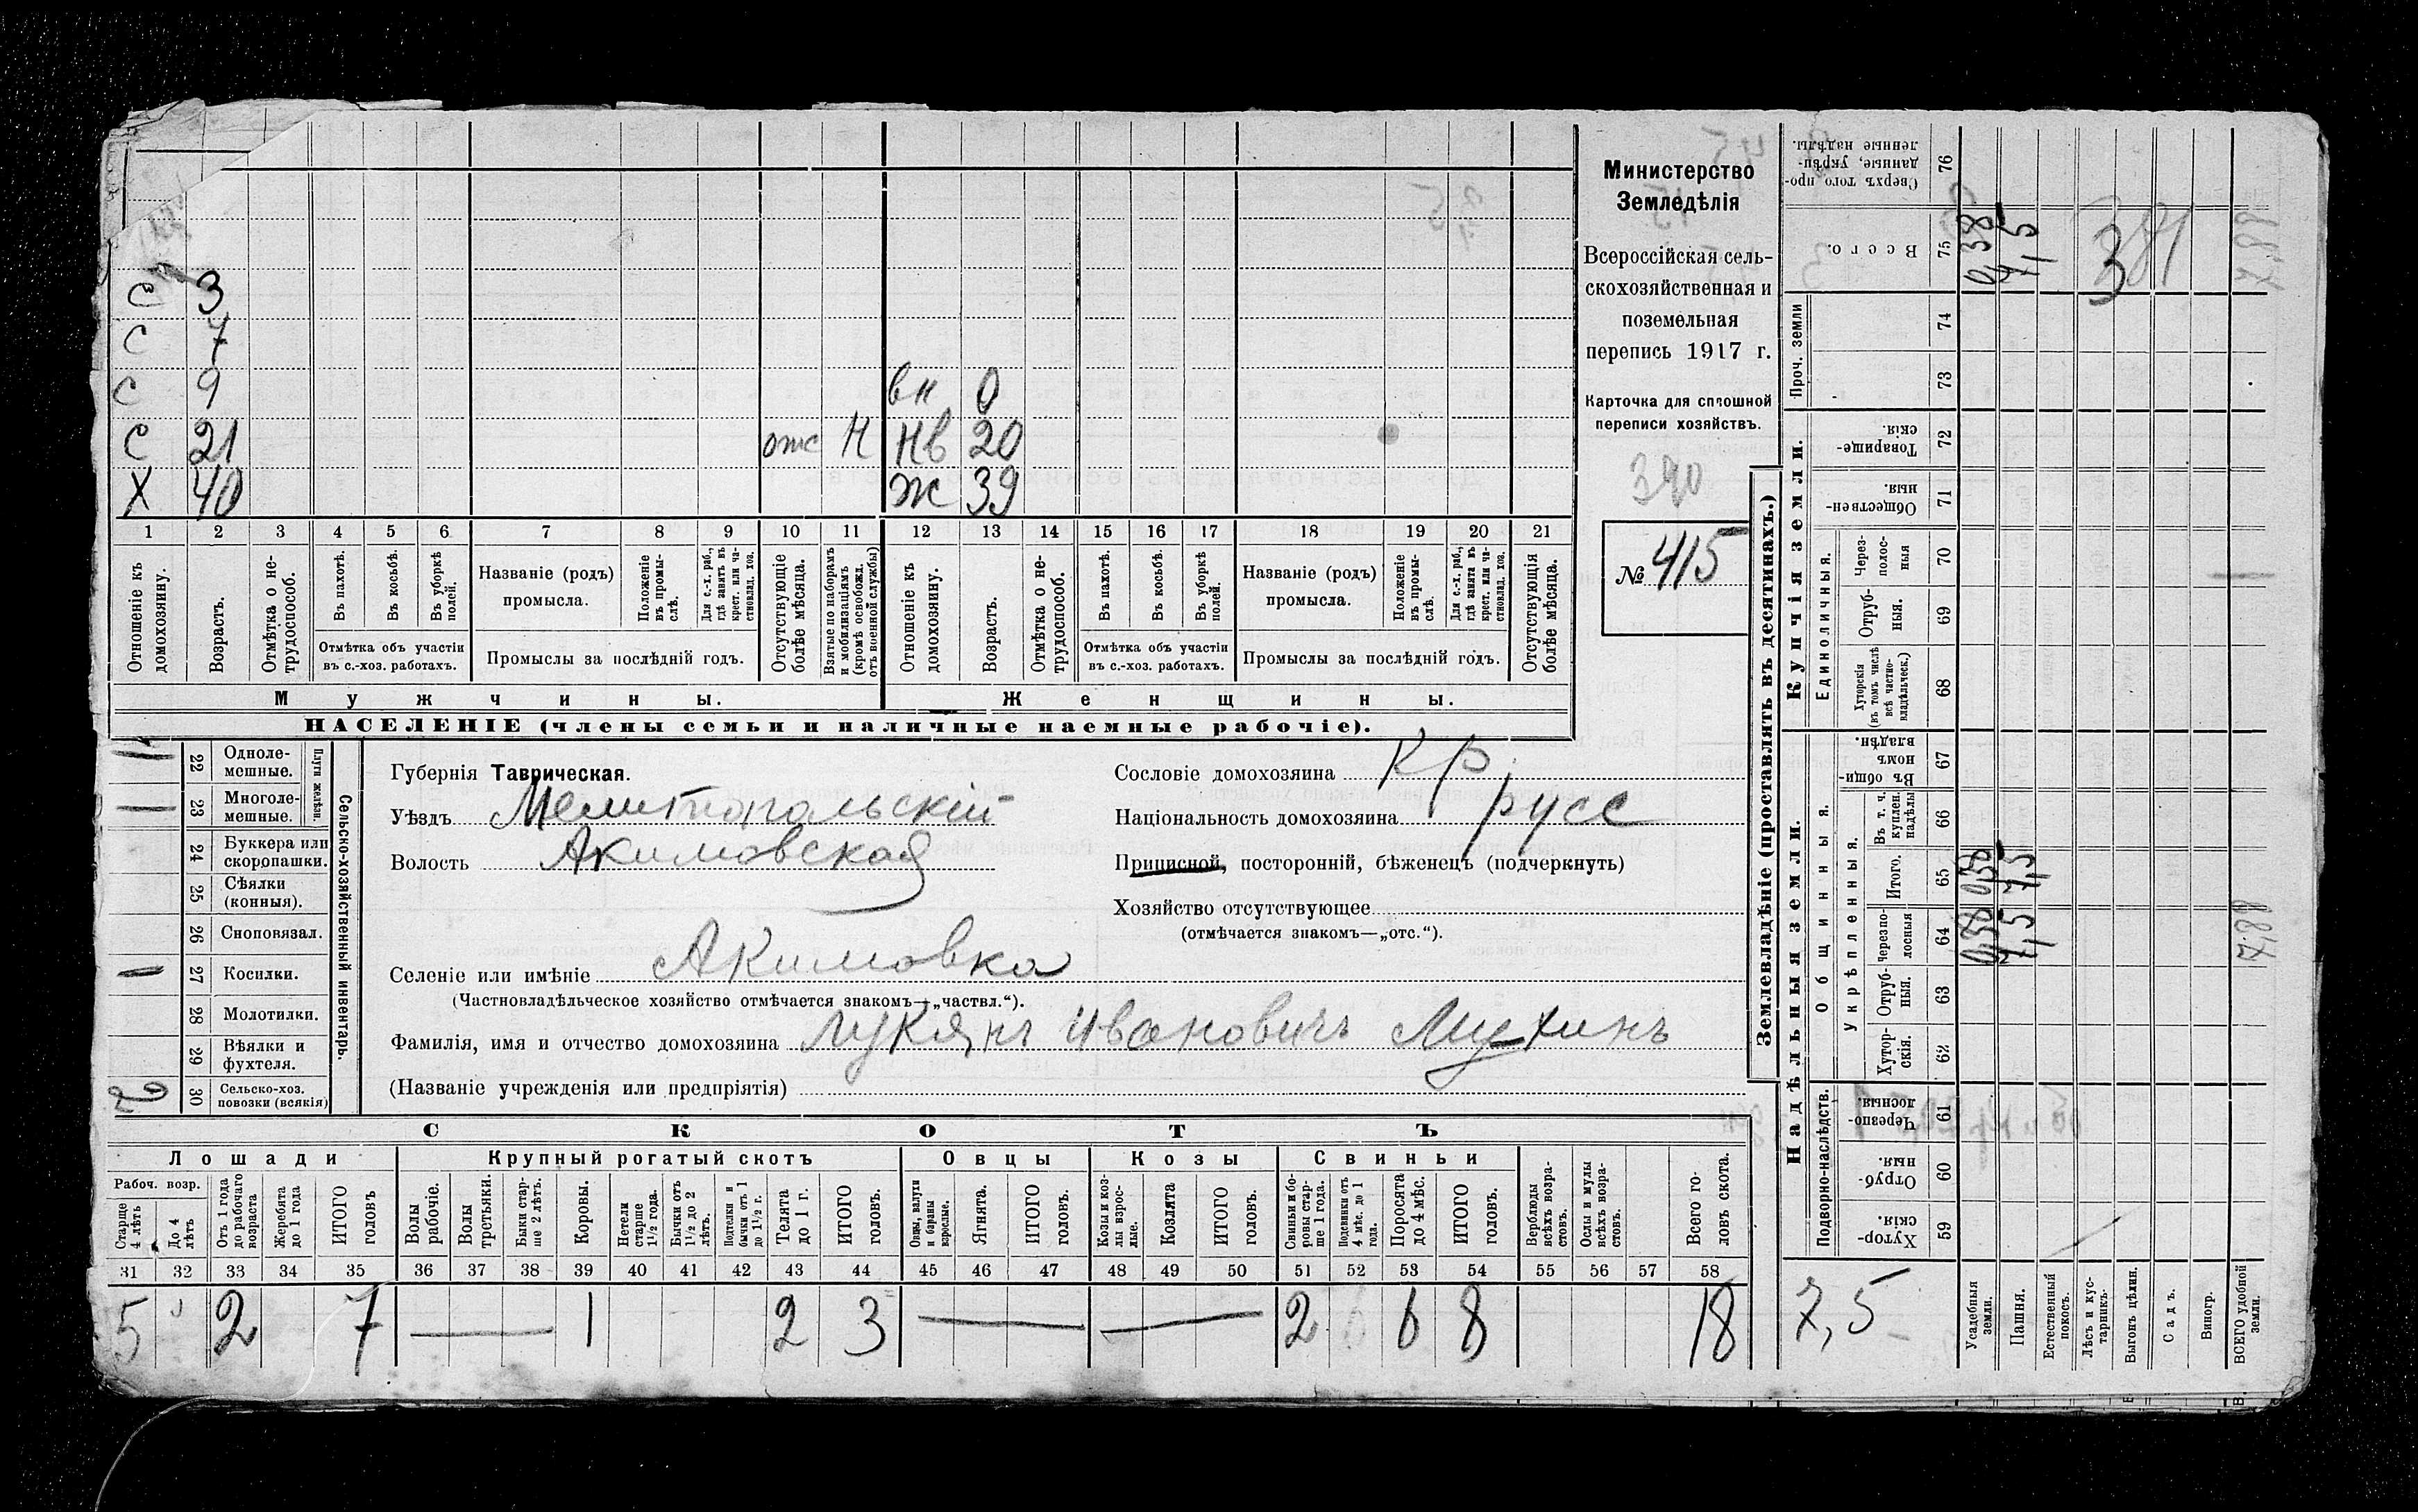 С 3
С 7
С 9 вн 0
С 21 отс Н Нв 20
Х 40 Ж 39
1 2 3 4 5 6 7 8 9 10 11 12 13 14 15 16 17 18 19 20 21
Отношеніе къ домохозяину.
Возрастъ.
Отмѣтка о не-трудоспособ.
Въ пахотѣ.
Въ косьбѣ.
Въ уборкѣ полей.
Отмѣтка объ участіи въ с.-хоз. работахъ.
Названіе (родъ) промысла.
Положеніе въ промы-слѣ.
Для с.-х. раб., гдѣ занятъ въ крест. или ча-стновлад. хоз.
Промыслы за послѣдній годъ.
Отсутствующіе болѣе мѣсяца.
Взятые по наборамъ и мобилизаціямъ (кромѣ освобожд. отъ военной службы)
Отношеніе къ домохозяину.
Возрастъ.
Отмѣтка о не-трудоспособ.
Въ пахотѣ.
Въ косьбѣ.
Въ уборкѣ полей.
Отмѣтка объ участіи въ с.-хоз. работахъ.
Названіе (родъ) промысла.
Положеніе въ промы-слѣ.
Для с.-х. раб., гдѣ занята въ крест. или ча-стновлад. хоз.
Промыслы за послѣдній годъ.
Отсутствующія болѣе мѣсяца.
Мужчины.
Женщины.
НАСЕЛЕНІЕ (члены семьи и наличные наемные рабочіе).
Министерство
Земледѣлія
Всероссійская сель-
скохозяйственная и
поземельная
перепись 1917 г.
Карточка для сплошной
переписи хозяйствъ.
390
№ 415
22 Одноле-мешные.
23 Многоле-мешные.
Плуги желѣзн.
24 Буккера или скоропашки.
25 Сѣялки (конныя).
26 Сноповязал.
27 Косилки.
28 Молотилки.
29 Вѣялки и фухтеля.
30 Сельско-хоз. повозки (всякія)
2
Сельско-хозяйственный инвентарь.
Губернія Таврическая.
Уѣздъ Мелитопольскій
Волость Акимовская
Селеніе или имѣніе Акимовка
(Частновладѣльческое хозяйство отмѣчается знакомъ—„частвл.“).
Фамилія, имя и отчество домохозяина Лукянъ Ивановичъ Мухинъ
(Названіе учрежденія или предпріятія)
Сословіе домохозяина Кр.
Національность домохозяина русс
Приписной, посторонній, бѣженецъ (подчеркнуть)
Хозяйство отсутствующее
(отмѣчается знакомъ—„отс.“).
СКОТЪ
Лошади Крупный рогатый скотъ Овцы Козы Свиньи
Рабоч. возр.
Старше 4 лѣтъ
До 4 лѣтъ
Отъ 1 года до рабочаго возраста
Жеребята до 1 года
ИТОГО головъ
Волы рабочіе.
Волы третьяки.
Быки стар-ше 2 лѣтъ.
Коровы.
Нетели старше 1½ года.
Бычки отъ 1½ до 2 лѣтъ.
Подтелки и бычки отъ 1 до 1½ г.
Телята до 1 г.
ИТОГО головъ.
Овцы, валухи и бараны взрослые.
Ягнята.
ИТОГО головъ.
Козы и коз-лы взрос-лые.
Козлята
ИТОГО головъ.
Свиньи и бо-ровы стар-ше 1 года.
Подсвинки отъ 4 мѣс. до 1 года.
Поросята до 4 мѣс.
ИТОГО головъ.
Верблюды всѣхъ возра-стовъ.
Ослы и мулы всѣхъ возра-стовъ.
Всего го-ловъ скота.
31 32 33 34 35 36 37 38 39 40 41 42 43 44 45 46 47 48 49 50 51 52 53 54 55 56 57 58
5 2 7 1 2 3 2 6 8 18
Землевладѣніе (проставлять въ десятинахъ.)
Надѣльныя земли.
Купчія земли.
Проч. земли
Подворно-наслѣдств.
Общинныя.
Укрѣпленныя.
Единоличныя.
Хутор-скія. 59
Отруб-ныя. 60
Черезпо-лосныя. 61
Хутор-скія. 62
Отруб-ныя. 63
Черезпо-лосныя 64 0,38 7,5 7,88
Итого. 65 0,38 7,5
Въ т. ч. куплен. надѣлы 66
Въ общи-номъ владѣн. 67
Хуторскія (въ томъ числѣ всѣ частно-владѣльческ.) 68
Отруб-ныя. 69
Через-полос-ныя 70
Обществен-ныя. 71
Товарище-скія. 72
73
74
Всего. 75 0,38 7,5 381 7,88
Сверхъ того про-данные, укрѣп-ленные надѣлы. 76
7,5
Усадебныя земли.
Пашня.
Естественный покосъ.
Лѣсъ и кус-тарникъ.
Выгонъ цѣлин.
Садъ.
Виногр.
ВСЕГО удобной земли.